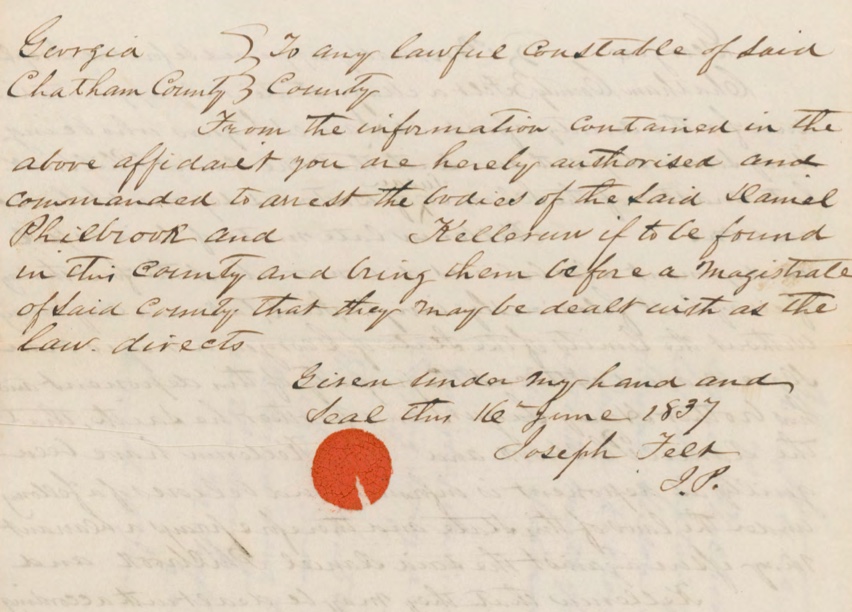 Georgia } To any lawful Constable of Said
Chatham County } County
From the information contained in the
above affidavit you are hereby authorised and
commanded to arrest the bodies of the Said Daniel
Philbrook and Kelleran if to be found
in this County and bring them before a Magistrate
of Said County that they may be dealt with as the
law. directs
Given under my hand and
Seal this 16th June 1837
Joseph Felt
J.P.